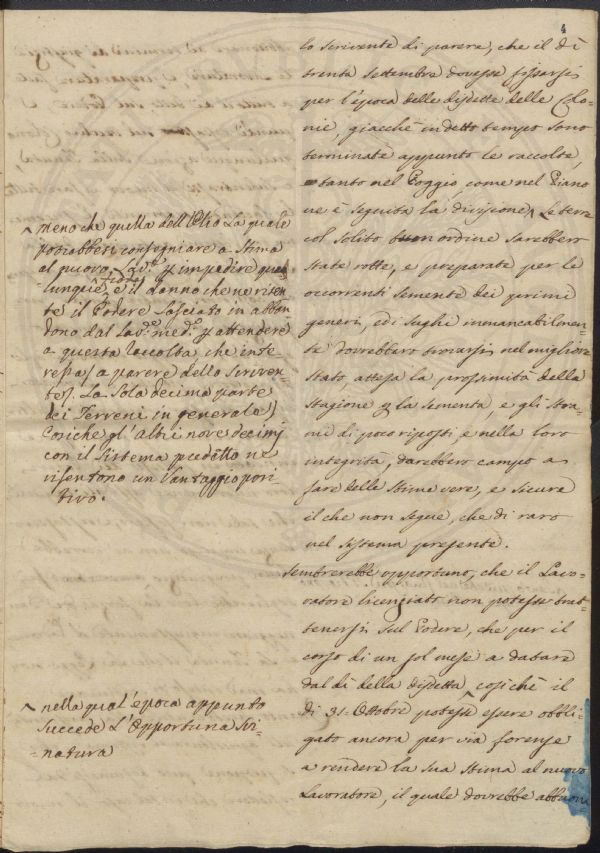 4
lo scrivente di parere, che il dì
trenta Settembre dovesse fissarsi
per l'epoca delle disdette delle Colo-
nie, giacchè in detto tempo sono
terminate appunto le raccolte,
tanto nel Poggio come nel Piano
ne è seguita la divisione ^ Le terre
col solito buon ordine sarebbero
state rotte, e preparate per le
occorrenti semente dei primi
generi, ed i sughi immancabilmen-
te dovrebbero trovarsi nel migliore
stato, attesa la prossimità della
Stagione p la sementa e gli stra-
mi di poco riposti e nella loro
integrità, darebbero campo a
fare delle stime vere, e sicure
il che non segue, che di raro
nel sistema presente.
Sembrerebbe opportuno, che il Lavo-
ratore licenziato non potesse trat-
tenersi sul Podere, che per il
corso di un sol mese a datare
dal dì della disdetta, cosichè il
dì 31. Ottobre potesse ^ essere obbli-
gato ancora per via forense
a rendere la sua Stima al nuovo
Lavoratore, il quale dovrebbe
^ meno che quella dell'Olio La quale
potrebbesi consegniare a Stima
al nuovo Lav.e p impedire qua-
lunque frode, e il danno che ne risen-
te il Podere lasciato in abban-
dono dal Lav.e med.o p attendere
a questa raccolta che inte-
ressa (a parere dello Scriven-
te) La Sola decima parte
dei Terreni in generale
Cosiche gl'Altri nove decimi
con il Sistema predetto ne
risentono un Vantaggio posi-
tivo.
^ nella qual'epoca appunto
succede L'Opportuna Svi-
natura